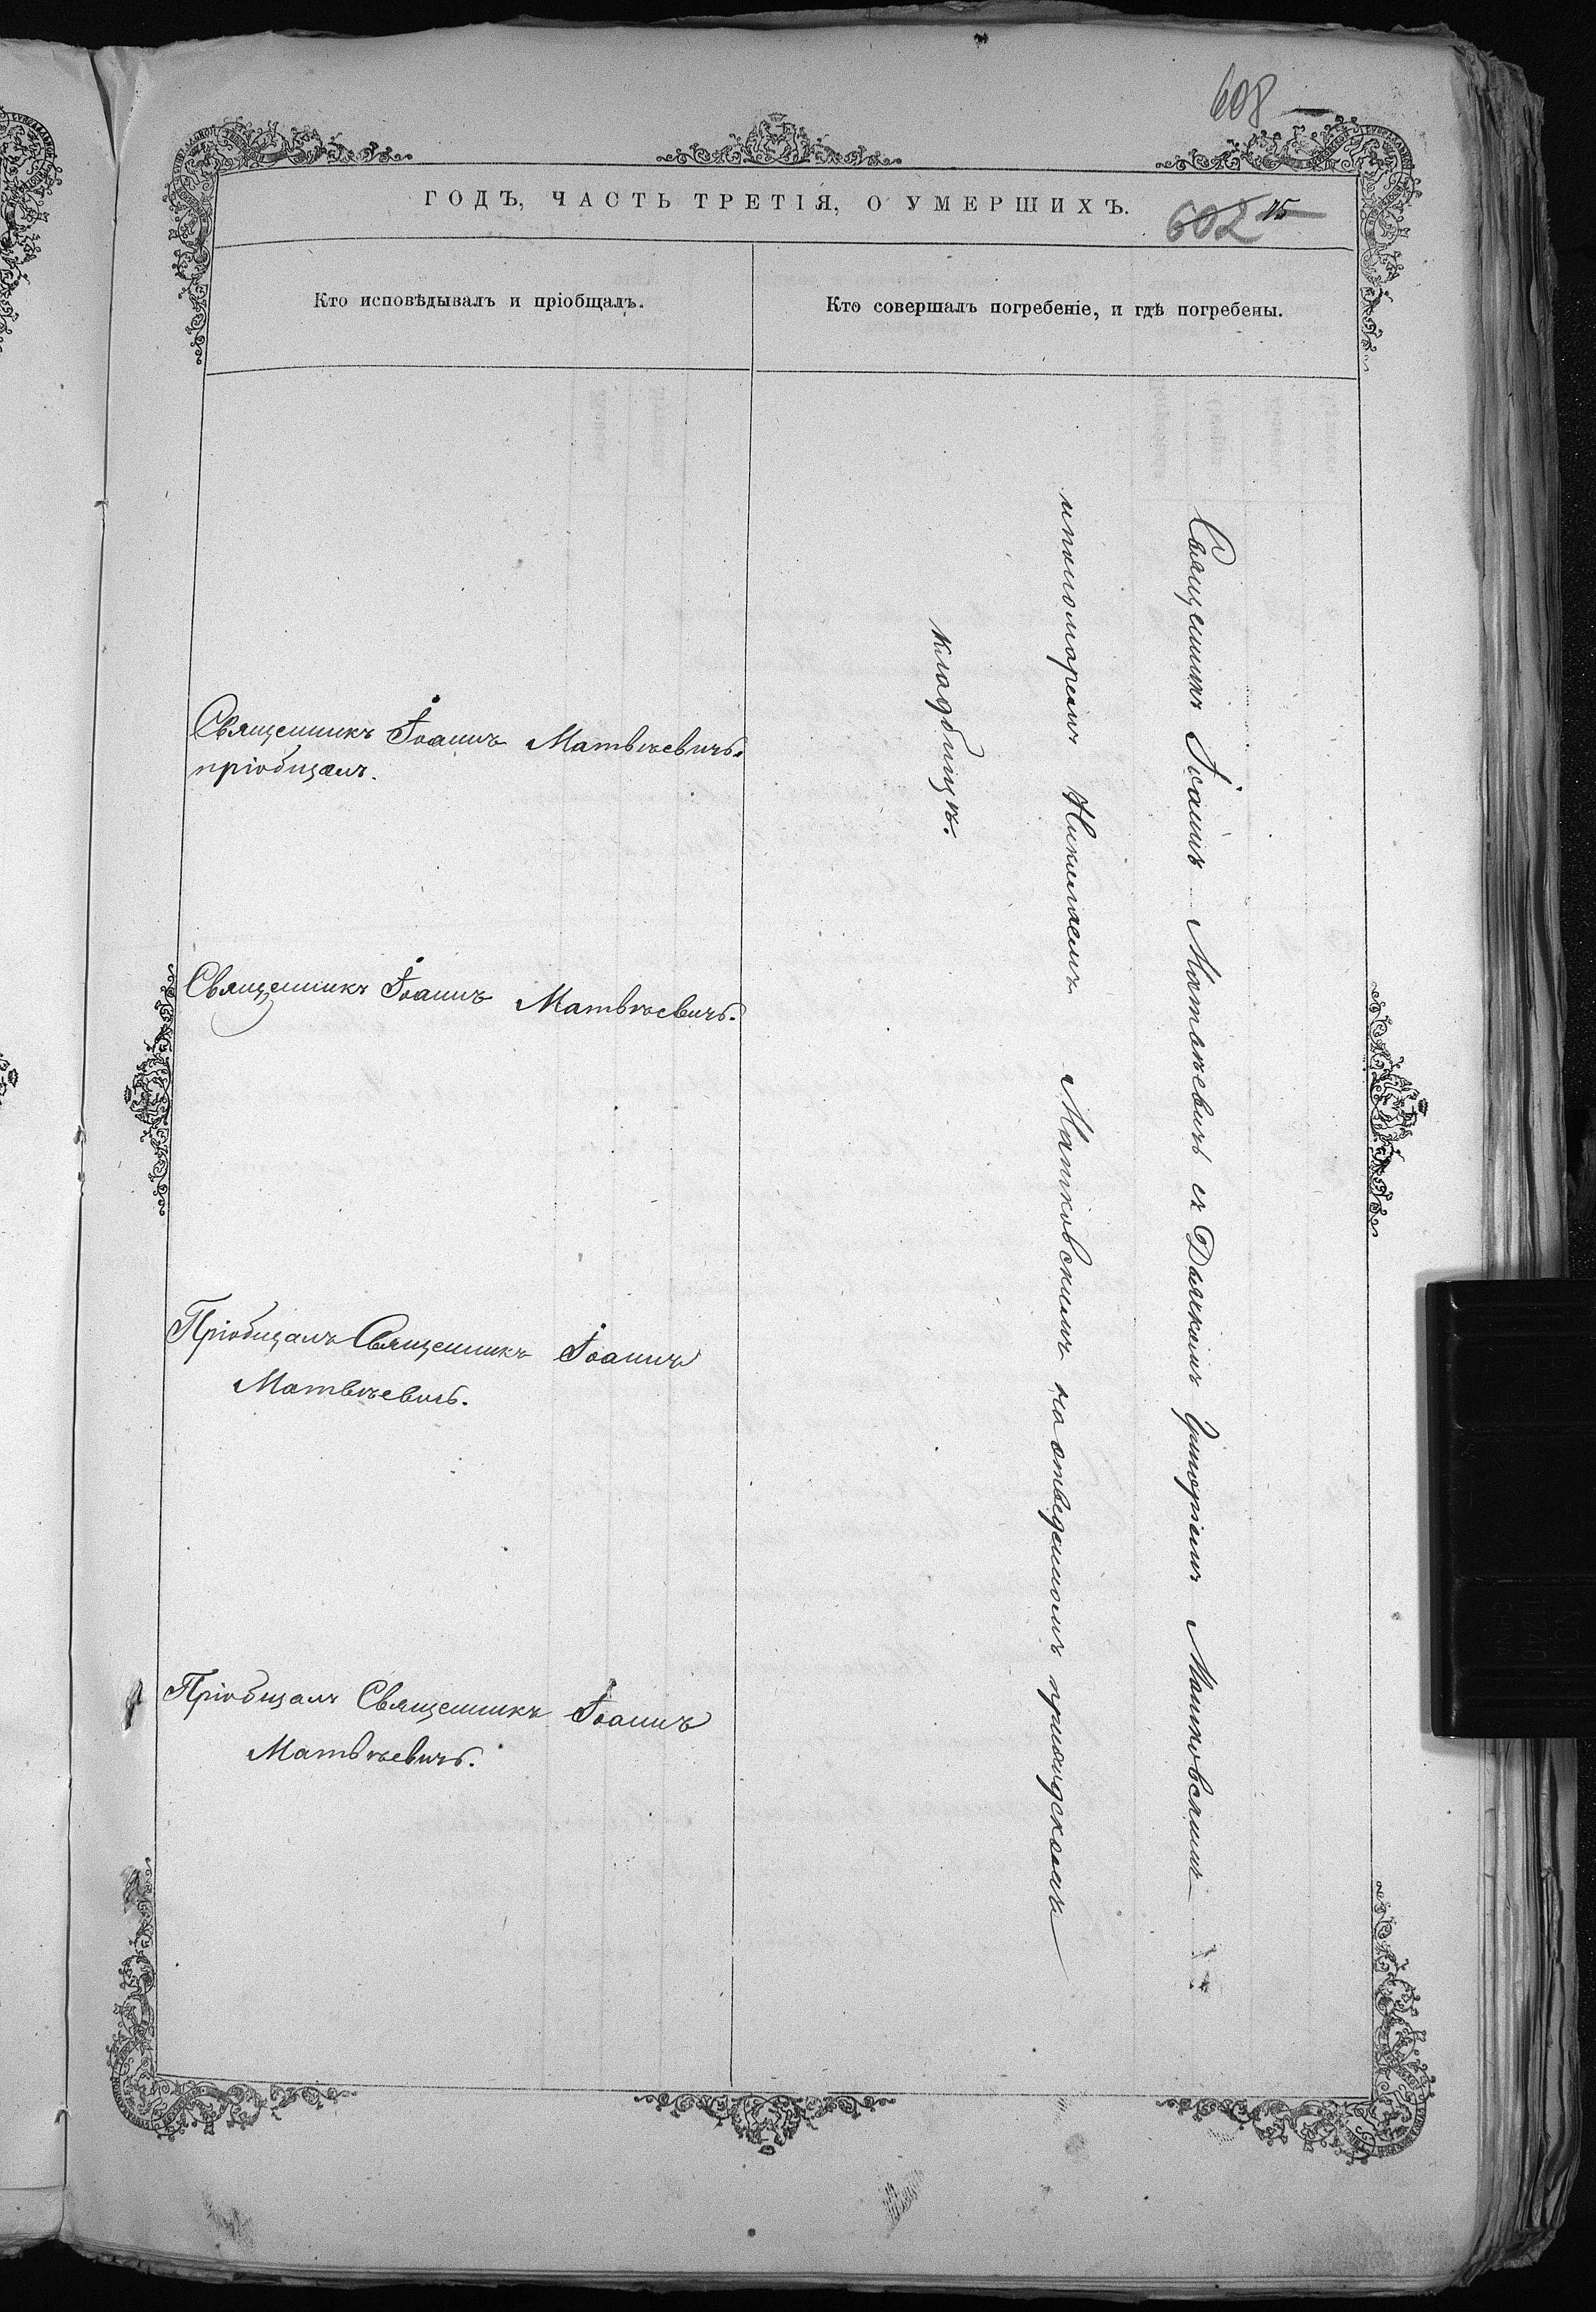 608
ГОДЪ, ЧАСТЬ ТРЕТІЯ, О УМЕРШИХЪ.
602 15
Кто исповѣдывалъ и пріобщалъ.
Кто совершалъ погребеніе, и гдѣ погребены.
Священникъ Іоаннъ Матвѣевичъ.
пріобщалъ.
Священникъ Іоаннъ Матвѣевичъ.
Пріобщалъ Священникъ Іоаннъ
Матвѣевичъ.
Пріобщалъ Священникъ Іоаннъ
Матвѣевичъ.
Священникъ Іоаннъ Матвѣевичъ съ Дьячкомъ Григоріемъ Матковскимъ
и пономаремъ Николаемъ Матковскимъ на отведенномъ приходскомъ
кладбищѣ.